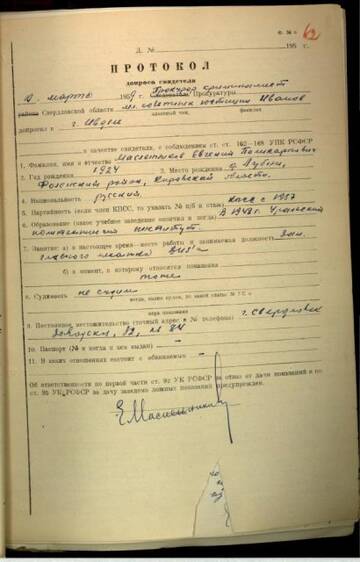 Ф. № 6
62
Д. №
195 г.
ПРОТОКОЛ
допроса свидетеля
марта 1959 г. Прокурор криминалист
Прокуратуры
Свердловской области мл. советник юстиции Иванов
классный чин, фамилия
допросил в г. Ивдель
в качестве свидетеля, с соблюдением ст. ст. 162—168 УПК РСФСР
1. Фамилия, имя и отчество Масленников Евгений Поликарпович
2. Год рождения 1924 3. Место рождения д.
район, Кировской области.
4. Национальность русский.
5. Партийность (если член КПСС, то указать № п/б и стаж) КПСС с 195
6. Образование (какое учебное заведение окончил и когда) В 1948 г. Уральский
политехнический институт
7. Занятие: а) в настоящее время—место работы и занимаемая должность Зам.
главного механика ВИЗ'а
б) в момент, к которому относятся показания
тоже
8. Судимость не судим
когда, каким судом, по какой статье УК и
мера наказания
9. Постоянное местожительство (точный адрес и № телефона) г. Свердловск
10. Паспорт (№ и когда и кем выдан) —
11. В каких отношениях состоит с обвиняемым —
Об ответственности по первой части ст. 92 УК РСФСР за отказ от дачи показаний и по
ст. 95 УК РСФСР за дачу заведомо ложных показаний предупрежден.
Е Масленников